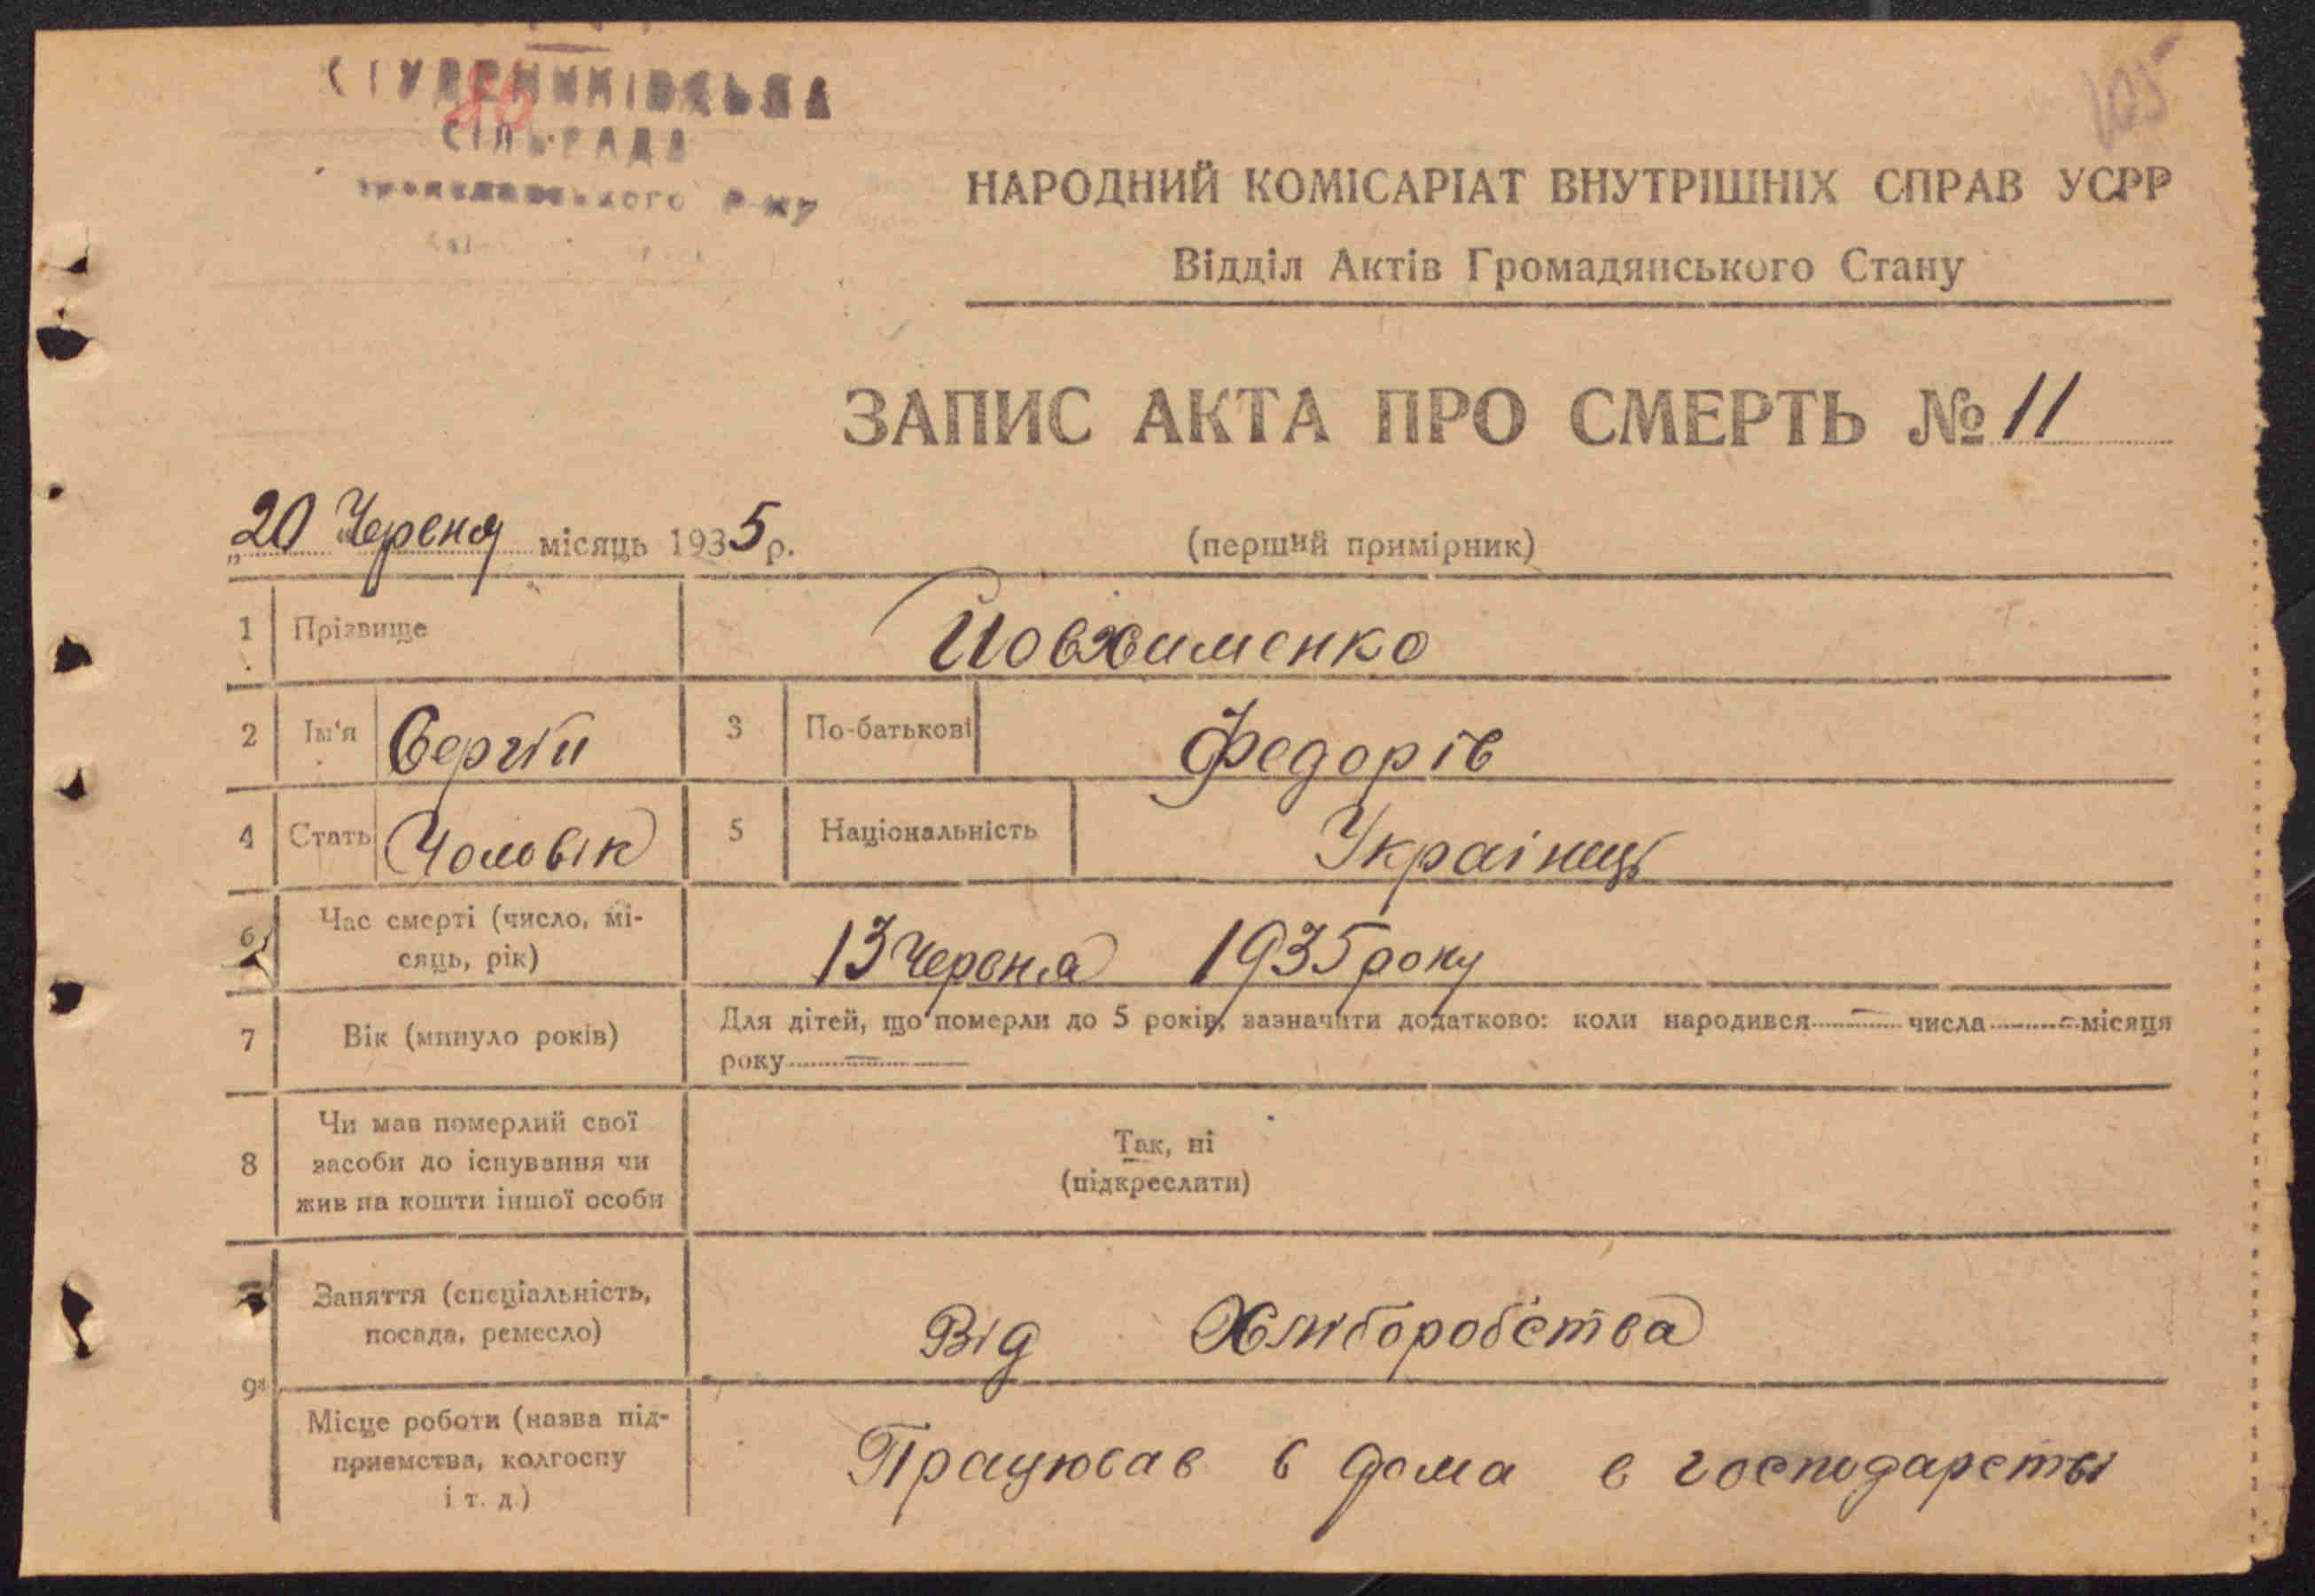 СТУДЕНИКІВСЬКА
86
СІЛЬРАДА
105
НАРОДНИЙ КОМІСАРІАТ ВНУТРІШНІХ СПРАВ УСРР
Відділ Актів Громадянського Стану
ЗАПИС АКТА ПРО СМЕРТЬ № 11
„20 Червня місяць 1935 р.
(перший примірник)
1 Прізвище Йовхименко
2 Ім'я Сергій 3 По-батькові Федорів
4 Стать Чоловік 5 Національність Украінець
6 Час смерті (число, мі-
сяць, рік) 13 Червня 1935 року
7 Вік (минуло років) Для дітей, що померли до 5 років, зазначити додатково: коли народився — числа — місяця
року —
8 Чи мав померлий свої
засоби до існування чи
жив на кошти іншої особи
Так, ні
(підкреслити)
9 Заняття (спеціальність,
посада, ремесло) Від Хліборобства
Місце роботи (назва під-
приємства, колгоспу
і т. д.) Працював в дома в господарстві